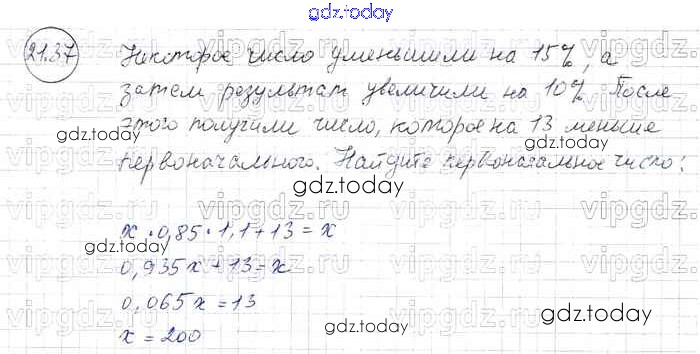 gdz.today
21.37
Некоторое число уменьшили на 15%, а
затем результат увеличили на 10%. После
этого получили число, которое на 13 меньше
первоначального. Найдите первоначальное число:
gdz.today
gdz.today
gdz.today
x · 0,85 · 1,1 + 13 = x
0,935x + 13 = x
0,065x = 13
x = 200
gdz.today
gdz.today
vipgdz.ru vipgdz.ru vipgdz.ru